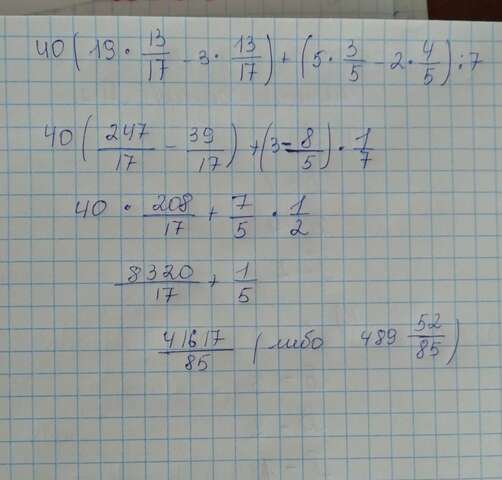 40(19·13/17 - 3·13/17) + (5·3/5 - 2·4/5) : 7
40(247/17 - 39/17) + (3-8/5)·1/7
40·208/17 + 7/5·1/2
8320/17 + 1/5
41617/85 (либо 489 52/85)